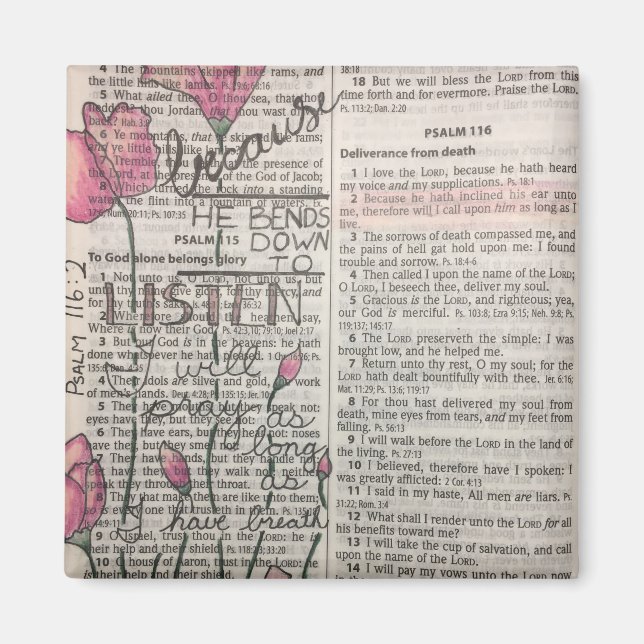 4 The mountains skipped like rams, and
the little hills like lambs. Ps. 29:6; 68:16
5 What ailed thee, O thou sea, that thou
thou Jordan, that thou wast
back? Hab. 3:8
6 Ye mountains, that ye skipped like rams;
and ye little hills, like lambs?
Tremble, thou earth, at the presence of
the Lord, at the presence of the God of Jacob;
8 Which turned the rock into a standing
water, the flint into a fountain of waters. Ex.
17:6; Num. 20:11; Ps. 107:35
because
HE BENDS
DOWN
TO
LISTEN
I will
pray as
long
as
I have breath
PSALM 116:2
PSALM 115
To God alone belongs glory
1 Not unto us, O LORD, not unto us, but
unto thy name give glory, for thy mercy, and
for thy truth's sake. Ezek. 36:32
2 Wherefore should the heathen say,
Where is now their God? Ps. 42:3, 10; 79:10; Joel 2:17
3 But our God is in the heavens: he hath
done whatsoever he hath pleased. 1 Chr. 16:26; Ps.
135:6; Dan. 4:35
4 Their idols are silver and gold, the work
of men's hands. Deut. 4:28; Ps. 135:15; Jer. 10:3
5 They have mouths, but they speak not:
eyes have they, but they see not:
6 They have ears, but they hear not: noses
have they, but they smell not:
7 They have hands, but they handle not:
feet have they, but they walk not: neither
speak they through their throat.
8 They that make them are like unto them;
so is every one that trusteth in them. Ps.
9 O Israel, trust thou in the LORD: he is
their help and their shield. Ps. 118:2; 33:20
10 O house of Aaron, trust in the LORD: he
is their help and their shield.
38:18
18 But we will bless the LORD from this
time forth and for evermore. Praise the LORD.
Ps. 113:2; Dan. 2:20
PSALM 116
Deliverance from death
1 I love the LORD, because he hath heard
my voice and my supplications. Ps. 18:1
2 Because he hath inclined his ear unto
me, therefore will I call upon him as long as I
live.
3 The sorrows of death compassed me, and
the pains of hell gat hold upon me: I found
trouble and sorrow. Ps. 18:4-6
4 Then called I upon the name of the LORD;
O LORD, I beseech thee, deliver my soul.
5 Gracious is the LORD, and righteous; yea,
our God is merciful. Ps. 103:8; Ezra 9:15; Neh. 9:8; Ps.
119:137; 145:17
6 The LORD preserveth the simple: I was
brought low, and he helped me.
7 Return unto thy rest, O my soul; for the
LORD hath dealt bountifully with thee. Jer. 6:16;
Mat. 11:29; Ps. 13:6; 119:17
8 For thou hast delivered my soul from
death, mine eyes from tears, and my feet from
falling. Ps. 56:13
9 I will walk before the LORD in the land of
the living. Ps. 27:13
10 I believed, therefore have I spoken: I
was greatly afflicted: 2 Cor. 4:13
11 I said in my haste, All men are liars. Ps.
31:22; Rom. 3:4
12 What shall I render unto the LORD for all
his benefits toward me?
13 I will take the cup of salvation, and call
upon the name of the LORD.
14 I will pay my vows unto the LORD now